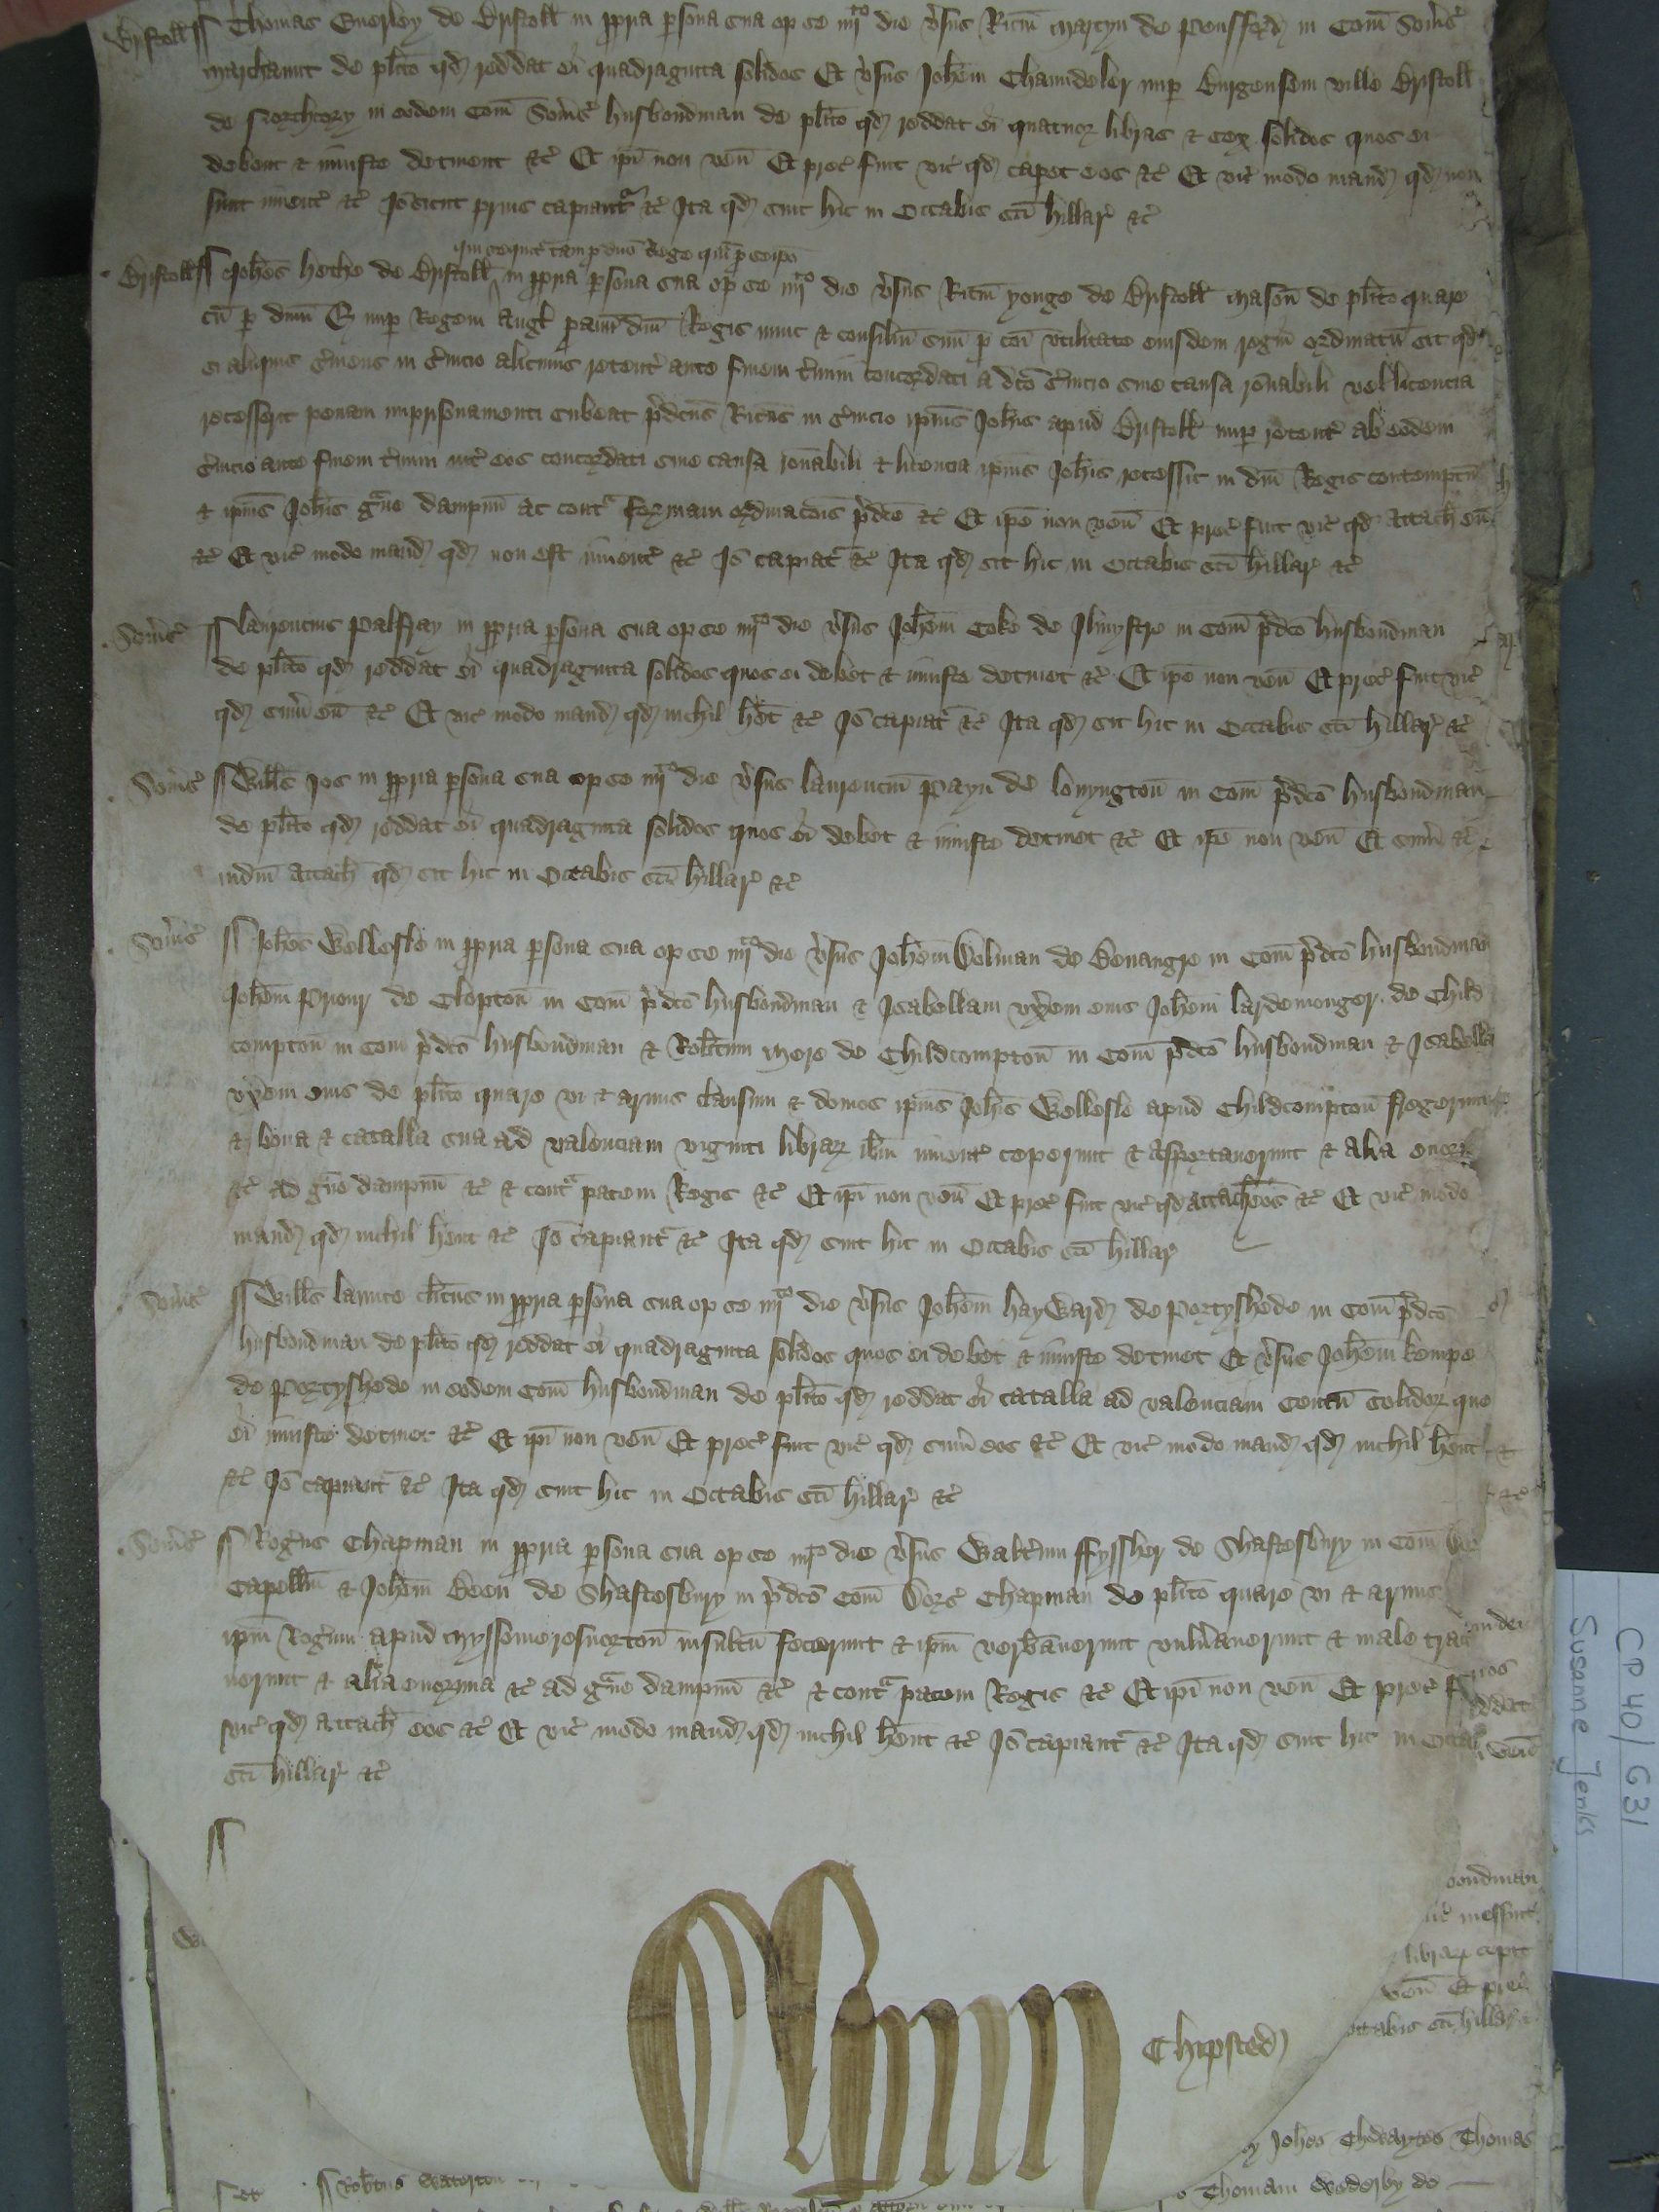 Bristoll Thomas Euerley de Bristoll in ppria psona sua op se iiijto die vsus Ricm Martyn de Pensford in Com Soms
marchaunt de plito qd reddat ei quadraginta solidos Et vsus Johem Chaundeler nup Burgensem ville Bristoll
de Northcory in eodem Com Soms husbondman de plito qd reddat ei quatuor libras & sex solidos quos ei
debent & iniuste detinent &c Et ipi non ven Et prec fuit vic qd capet eos &c Et vic modo mand qd non
sunt inuent &c Io sicut prius capiantr &c Ita qd sint hic in Octabis sci Hillar &c
qui sequit tam p dno Rege qm p seipo
Bristoll Johes Hethe de Bristoll in ppria psona sua op se iiijto die vsus Ricm Yonge de Bristoll mason de plito quare
cu p dnm E nup Regem Angl pauu dni Regis nunc & consiliu suu p coi vtilitate eiusdem regni ordinatu sit qd
si aliquis suiens in suicio alicuius retent ante finem tmini concordati a dco suicio sine causa ronabili vel licencia
recesserit penam imprisonamenti subeat pdcus Ricus in suicio ipius Johis apud Bristoll nup retent ab eodem
suicio ante finem tmini int eos concordati sine causa ronabili & licencia ipius Johis recessit in dni Regis contemptu
& ipius Johis gue dampnu ac cont formam ordinacois pdce &c Et ipe non ven Et prec fuit vic qd attach eu
&c Et vic modo mand qd non est inuent &c Io capiat &c Ita qd sit hic in Octabis sci Hillar &c
Soms Laurencius Palfray in ppria psona sua op se iiijto die vsus Johem Coke de Ilmystre in Com pdco husbondman
de plito qd reddat ei quadraginta solidos quos ei debet & iniuste detinet &c Et ipe non ven Et prec fuit vic
qd sum eu &c Et vic modo mand qd nichil het &c Io capiat &c Ita qd sit hic in Octabis sci Hillar &c
Soms Wills Jos in ppria psona sua op se iiijto die vsus Laurenciu Payn de Lonyngton in Com pdco husbondman
de plito qd reddat ei quadraginta solidos quos ei debet & iniuste detinet &c Et ipe non ven Et sum &c
iudm attach qd sit hic in Octabis sci Hillar &c
Soms Johes Wellesle in ppria psona sua op se iiijto die vsus Johem Dolman de Benangre in Com pdco husbondman
Johem Priour de Clopton in Com pdco husbondman & Isabellam vxem eius Johem Lardemonger de Child
compton in Com pdco husbondman & Robtum More de Childcompton in Com pdco husbondman & Isabella
vxem eius de plito quare vi & armis clausum & domos ipius Johis Wellesle apud Childcompton fregerunt
& bona & catalla sua ad valenciam viginti librar ibm inuent ceperunt & asportauerunt & alia enor
&c ad gue dampnu &c & cont pacem Regis &c Et ipi non ven Et prec fuit vic qd attach eos &c Et vic modo
mand qd nichil hent &c Io capiant &c Ita qd sint hic in Octabis sci Hillar
Soms Wills Launce clicus in ppria psona sua op se iiijto die vsus Johem Hayward de Portyshede in Com pdco
husbondman de plito qd reddat ei quadraginta solidos quos ei debet & iniuste detinet Et vsus Johem Kempe
de Portyshede in eodem Com husbondman de plito qd reddat ei catalla ad valenciam Centu solidor que
ei iniuste detinet &c Et ipi non ven Et prec fuit vic qd sum eos &c Et vic modo mand qd nichil hent
&c Io capiant &c Ita qd sint hic in Octabis sci Hillar &c
Soms Rogus Chapman in ppria psona sua op se iiijto die vsus Waltum Ffyssher de Shaftesbury in Com Dor
Capellm & Johem Been de Shaftesbury in pdco Com Dors Chapman de plito quare vi & armis
ipm Rogum apud insultu fecerunt & ipm verbauerunt vulnauerunt & male trac
uerunt & alia enormia &c ad gue dampnu &c & cont pacem Regis &c Et ipi non ven Et prec f
vic qd attach eos &c Et vic modo mand qd nichil hent &c Io capiant &c Ita qd sint hic in Octab
sci Hillar &c
Chipsted
bondman
librar
ven Et prec
octabis sci Hillar
Johes Thomas
Robtus Waterton
Thomam Wederby de
CP 40/631
Susanne Jenks